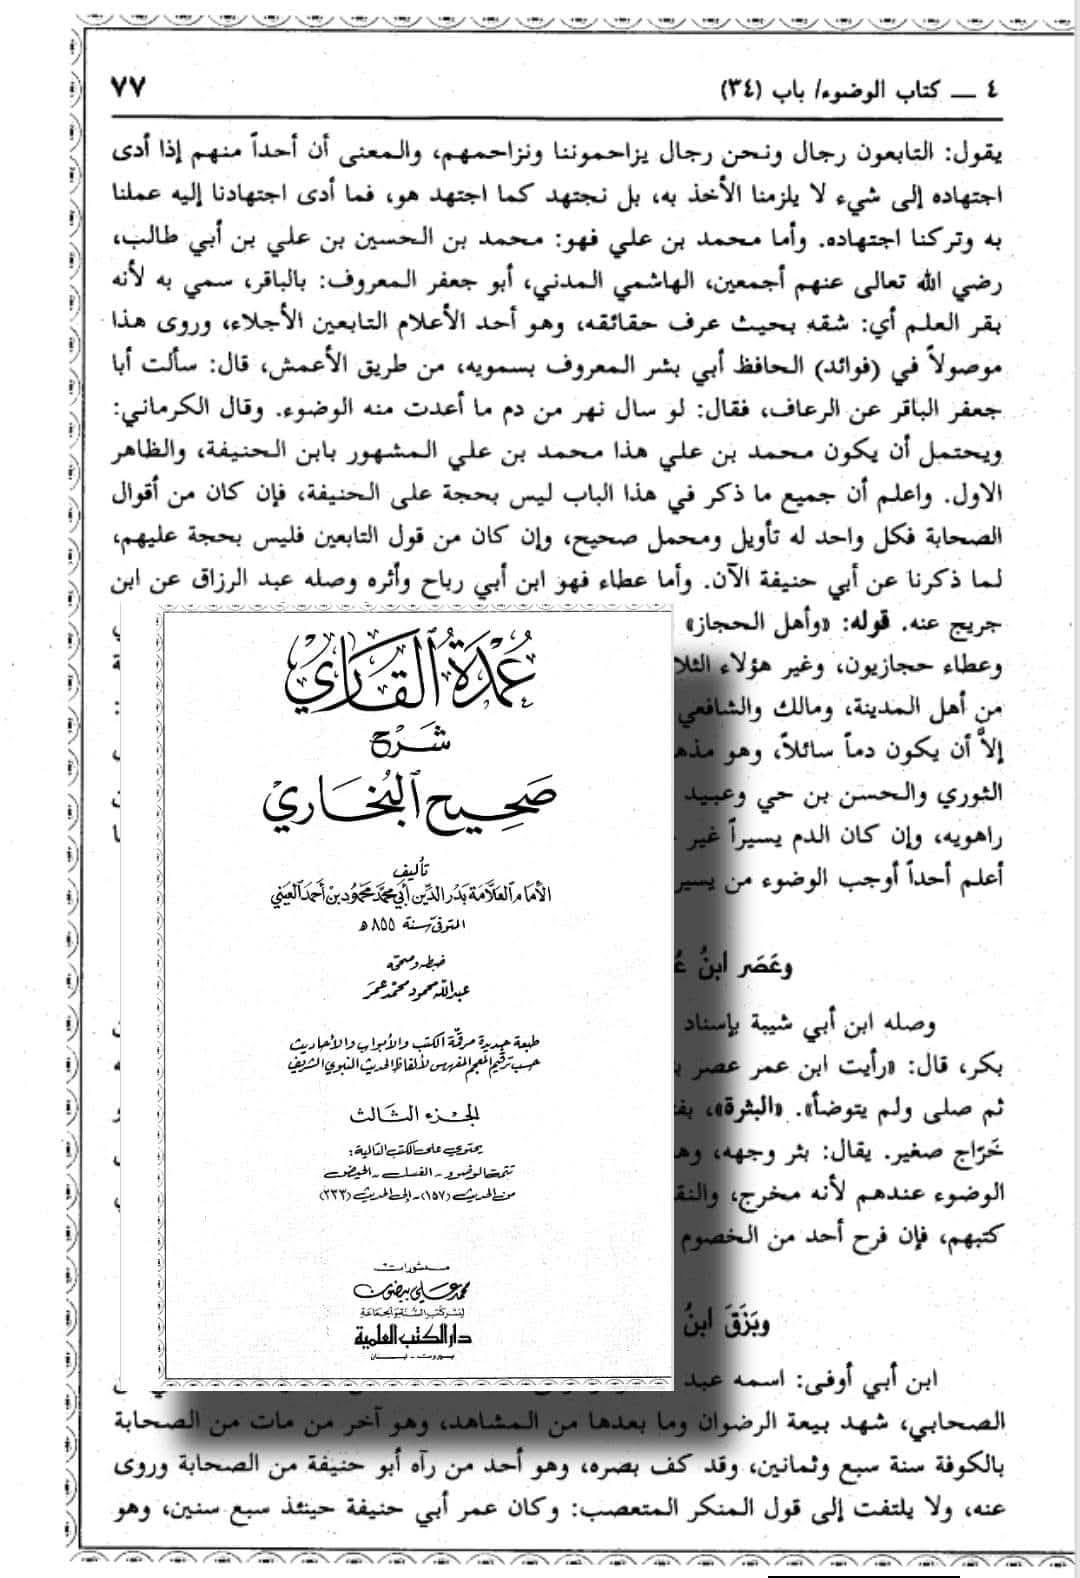 ٤ ـــ كتاب الوضوء/ باب (٣٤)
٧٧
يقول: التابعون رجال ونحن رجال يزاحموننا ونزاحمهم، والمعنى أن أحداً منهم إذا أدى
اجتهاده إلى شيء لا يلزمنا الأخذ به، بل نجتهد كما اجتهد هو، فما أدى اجتهادنا إليه عملنا
به وتركنا اجتهاده. وأما محمد بن علي فهو: محمد بن الحسين بن علي بن أبي طالب،
رضي الله تعالى عنهم أجمعين، الهاشمي المدني، أبو جعفر المعروف: بالباقر، سمي به لأنه
بقر العلم أي: شقه بحيث عرف حقائقه، وهو أحد الأعلام التابعين الأجلاء، وروى هذا
موصولاً في (فوائد) الحافظ أبي بشر المعروف بسمويه، من طريق الأعمش، قال: سألت أبا
جعفر الباقر عن الرعاف، فقال: لو سال نهر من دم ما أعدت منه الوضوء. وقال الكرماني:
ويحتمل أن يكون محمد بن علي هذا محمد بن علي المشهور بابن الحنيفة، والظاهر
الاول. واعلم أن جميع ما ذكر في هذا الباب ليس بحجة على الحنيفة، فإن كان من أقوال
الصحابة فكل واحد له تأويل ومحمل صحيح، وإن كان من قول التابعين فليس بحجة عليهم،
لما ذكرنا عن أبي حنيفة الآن. وأما عطاء فهو ابن أبي رباح وأثره وصله عبد الرزاق عن ابن
جريج عنه. قوله: «وأهل الحجاز»
وعطاء حجازيون، وغير هؤلاء الثلا
من أهل المدينة، ومالك والشافعي
إلاَّ أن يكون دماً سائلاً، وهو مذه
الثوري والحسن بن حي وعبيد
راهويه، وإن كان الدم يسيراً غير
أعلم أحداً أوجب الوضوء من يسير
وعَصَر ابنُ عُ
وصله ابن أبي شيبة بإسناد
بكر، قال: «رأيت ابن عمر عصر
ثم صلى ولم يتوضأ». «البثرة»، بفت
خَرّاج صغير. يقال: بثر وجهه، وه
الوضوء عندهم لأنه مخرج، والنق
كتبهم، فإن فرح أحد من الخصوم
وبَزَقَ ابنُ
ابن أبي أوفى: اسمه عبد
الصحابي، شهد بيعة الرضوان وما بعدها من المشاهد، وهو آخر من مات من الصحابة
بالكوفة سنة سبع وثمانين، وقد كف بصره، وهو أحد من رآه أبو حنيفة من الصحابة وروى
عنه، ولا يلتفت إلى قول المنكر المتعصب: وكان عمر أبي حنيفة حينئذ سبع سنين، وهو
عُمْدَةُ ٱلْقَارِي
شَرْح
صَحِيح ٱلْبُخَارِي
تأليف
الأمام العلامة بدر الدين أبي محمد محمود بن أحمد العيني
المتوفى سنة ٨٥٥ هـ
ضبطه وصححه
عبد الله محمود محمد عمر
طبعة جديدة مرقمة الكتب والأبواب والأحاديث
حسب ترقيم المعجم المفهرس لألفاظ الحديث النبوي الشريف
الجزء الثالث
يحتوي على الكتب التالية:
تتمة الوضوء - الغسل - الحيض
من الحديث (١٥٧) - إلى الحديث (٣٣٣)
منشورات
محمد علي بيضون
لنشر كتب السنة والجماعة
دار الكتب العلمية
بيروت - لبنان